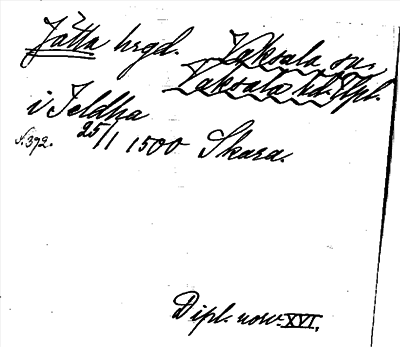 Jätta hrgd. Vaksala sn.
Vaksala hd. Upl.
i Jeldha
N. 392. 25/1 1500 Skara.
Dipl. norv. XVI.